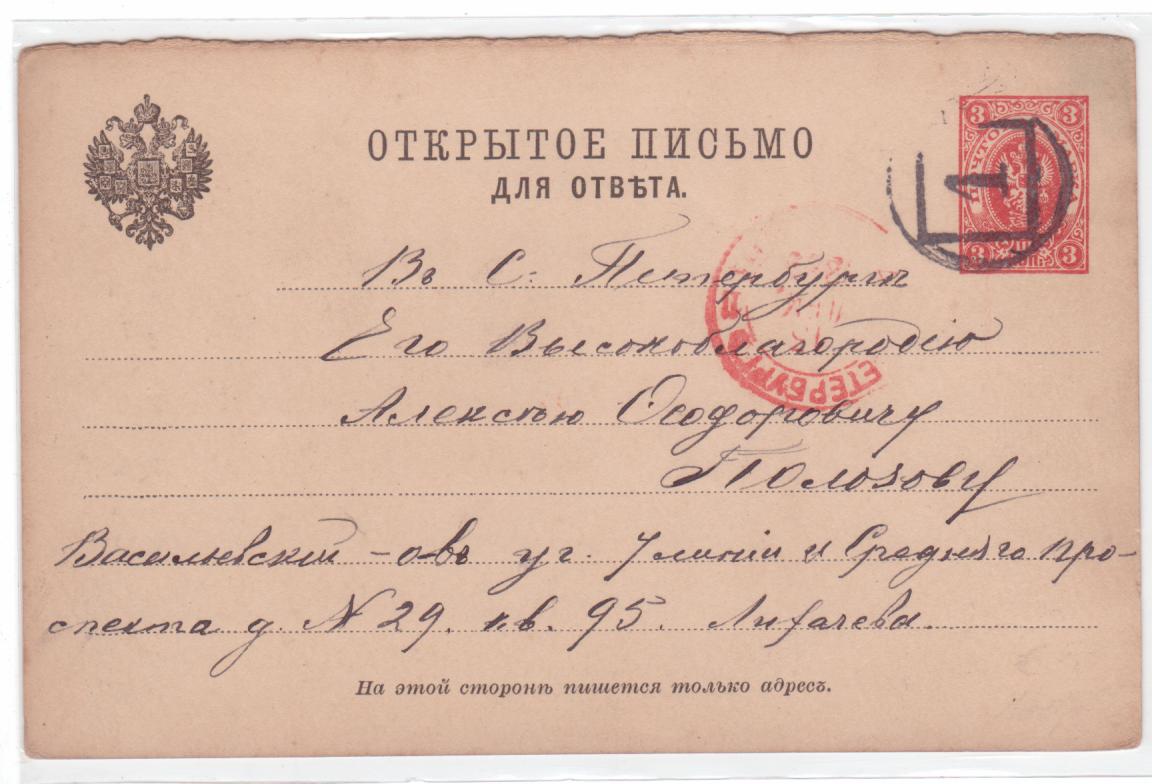 ОТКРЫТОЕ ПИСЬМО
ДЛЯ ОТВѢТА.
3 3
ПОЧТОВАЯ МАРКА
3 КОП. 3
1
Въ С. Петербургѣ
ЕТЕРБУРГЪ
Его Высокоблагородію
Алексѣю Ѳеодоровичу
Полозову
Васильевскій – овъ уг. 7 линіи и Средняго про-
спекта д. № 29. кв. 95. Лихачева.
На этой сторонѣ пишется только адресъ.